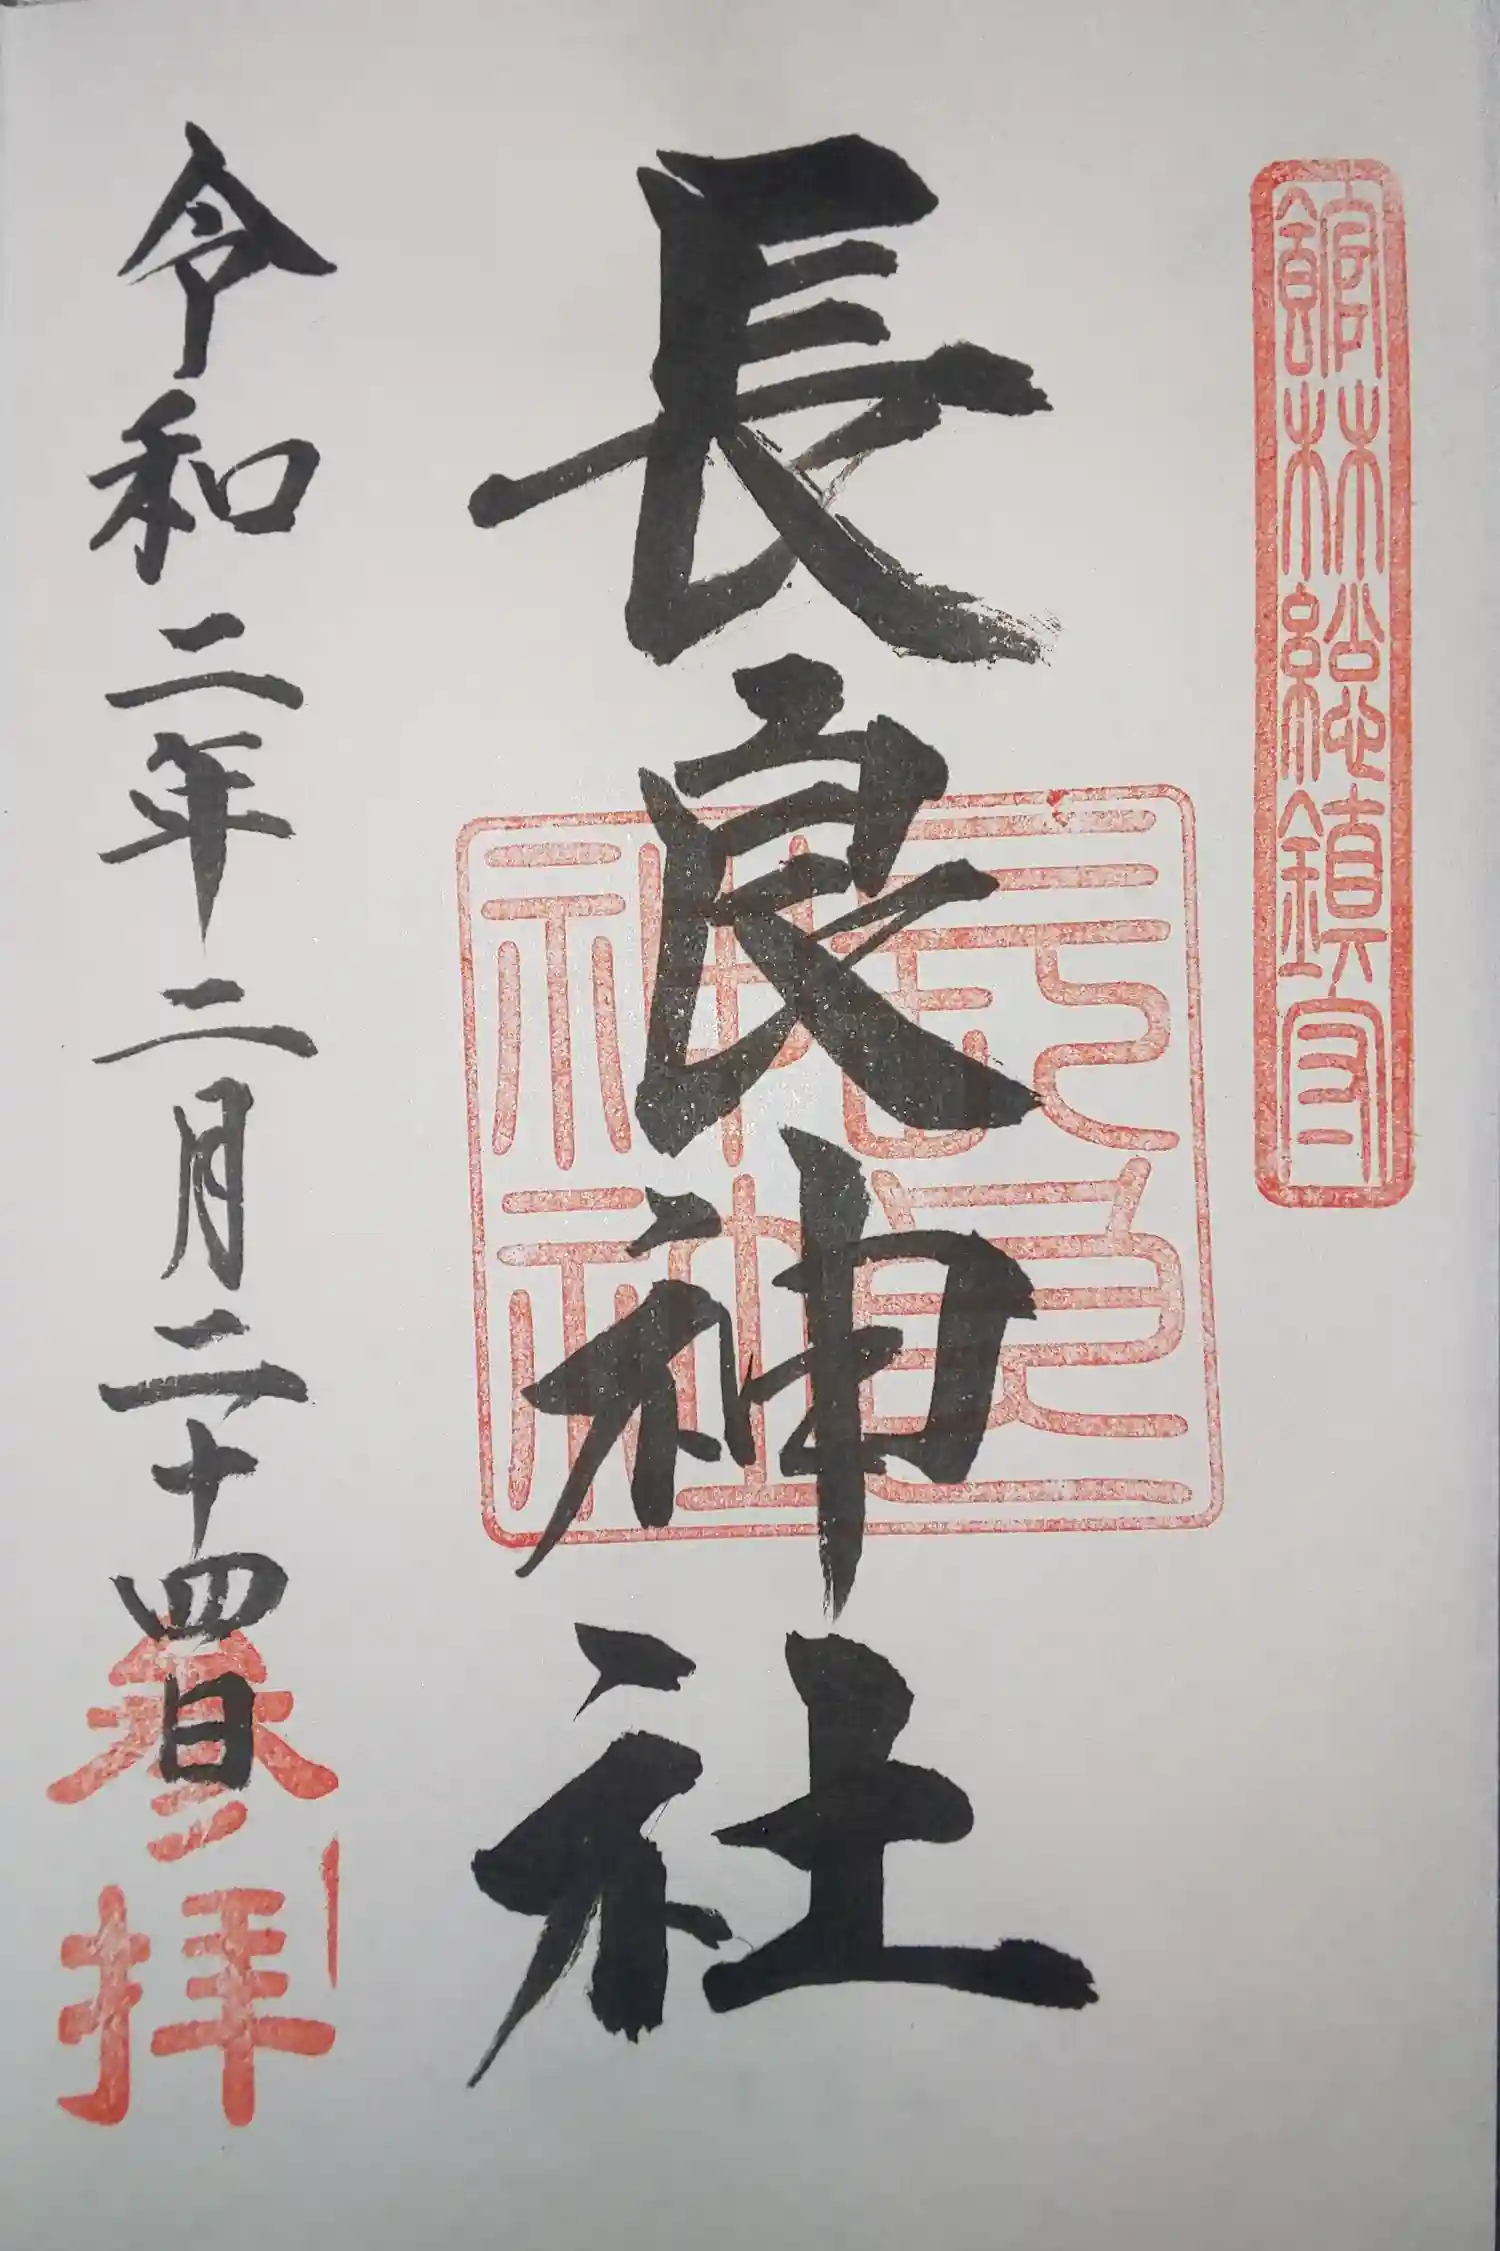 館林総鎮守
長良神社
長良
神社
令和二年二月二十四日
参拝